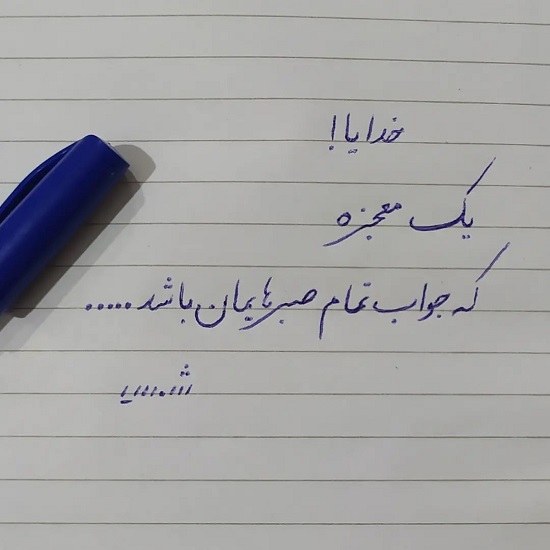 خدایا!
یک معجزه
که جواب تمام صبرهایمان باشد.....